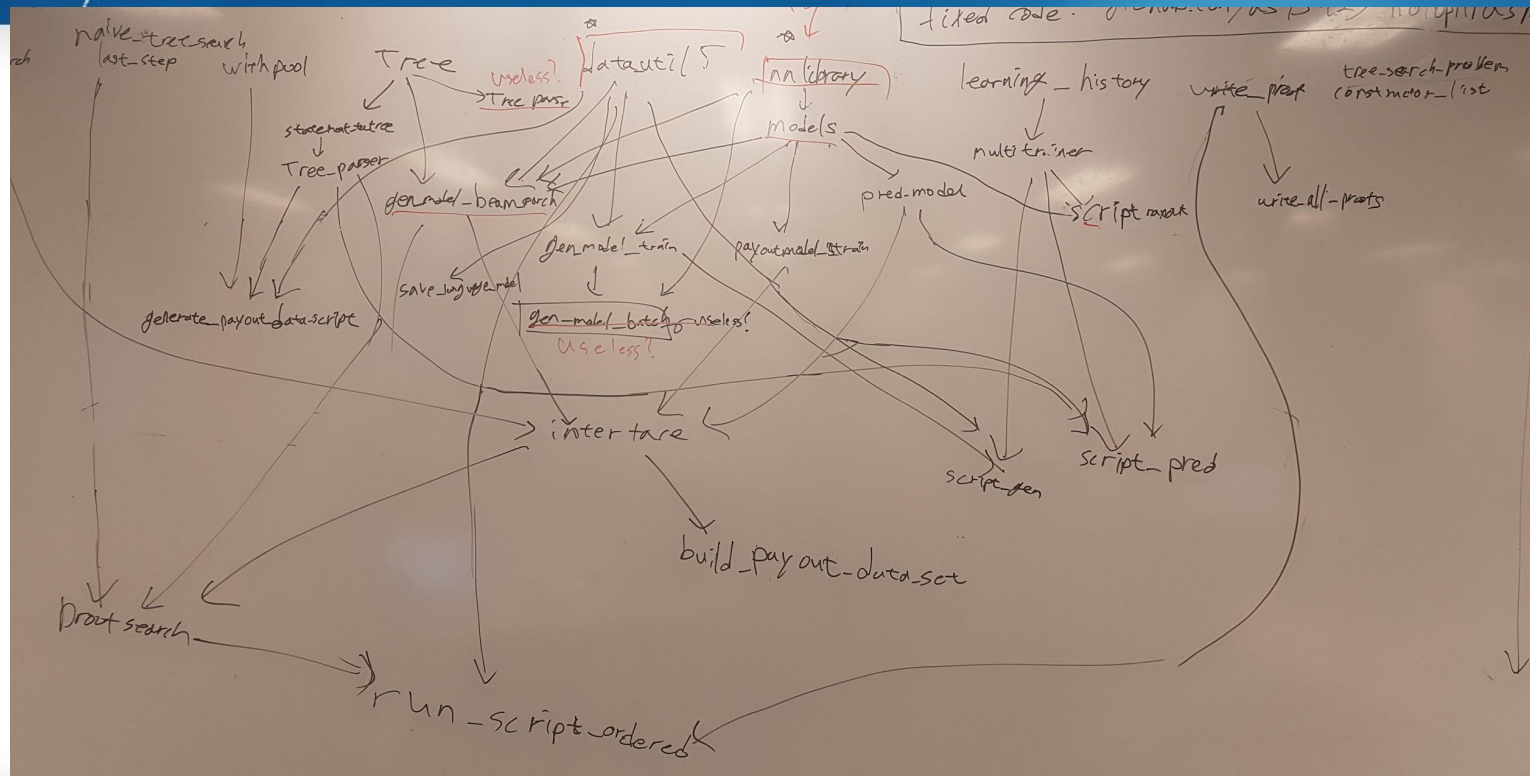 fixed code:
naive_tree_search
last_step
withpool
Tree
useless?
Tree parse
datautils
nnlibrary
learning_history
write_proof
tree_search_problem
constructor_list
models
Tree_parser
multitrainer
pred_model
gen_model_beamsearch
write_all_proofs
gen_model_train
payoutmodel_train
save_language_model
generate_payout_data_script
gen_model_batch useless?
useless?
interface
script_gen
script_pred
build_payout_data_set
Proof search
run_script_ordered